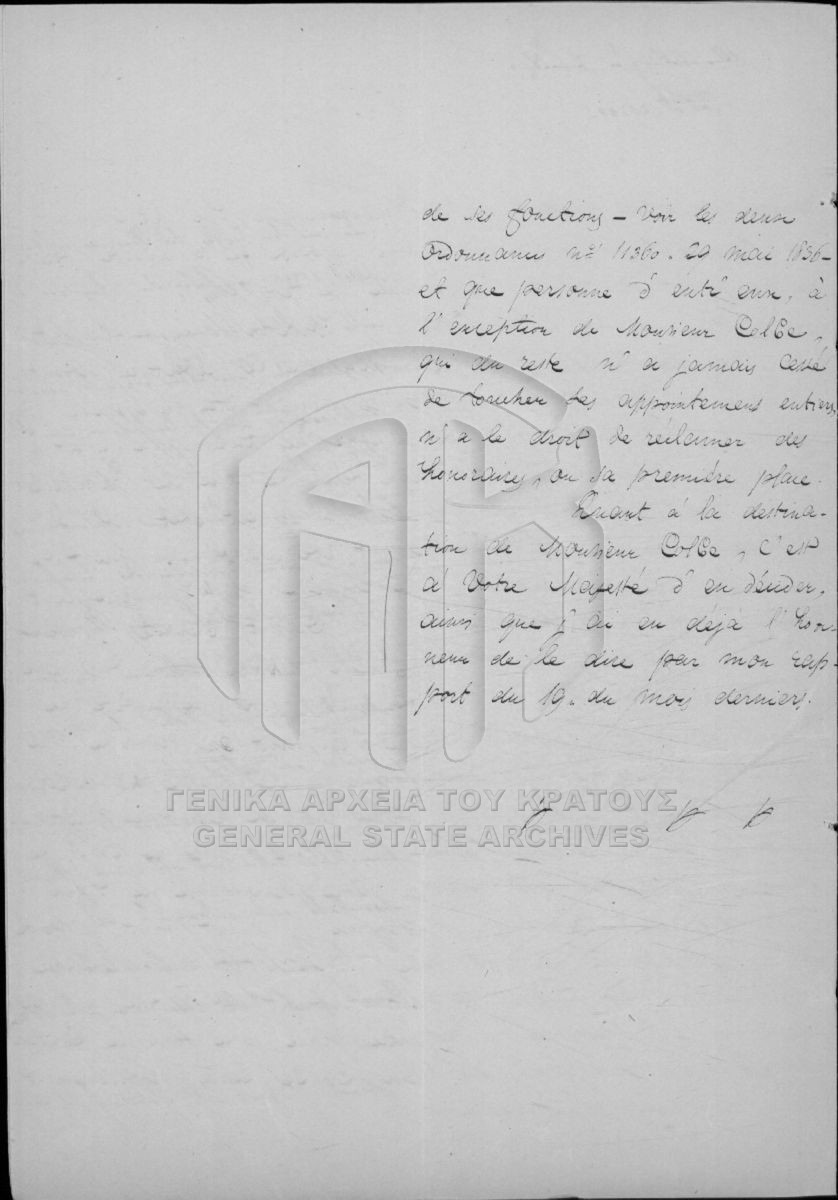 de ses fonctions – Voir les deux
Ordonnances nº 11360. 29 mai 1836–
et que personne d'entr'eux, à
l'exception de Monsieur
qui du reste n'a jamais cessé
de toucher ses appointemens entiers,
n'a le droit de réclamer des
honoraires, ou sa première place.
Quant à la destina-
tion de Monsieur c'est
à Votre Majesté d'en décider,
ainsi que j'ai eu déjà l'hon-
neur de le dire par mon rap-
port du 19. du mois derniers.
ΓΕΝΙΚΑ ΑΡΧΕΙΑ ΤΟΥ ΚΡΑΤΟΥΣ
GENERAL STATE ARCHIVES